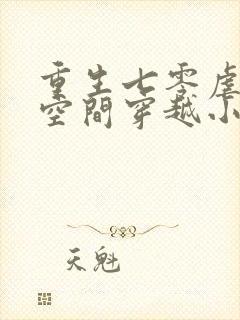 重生七零虐
空間穿越小
天魁